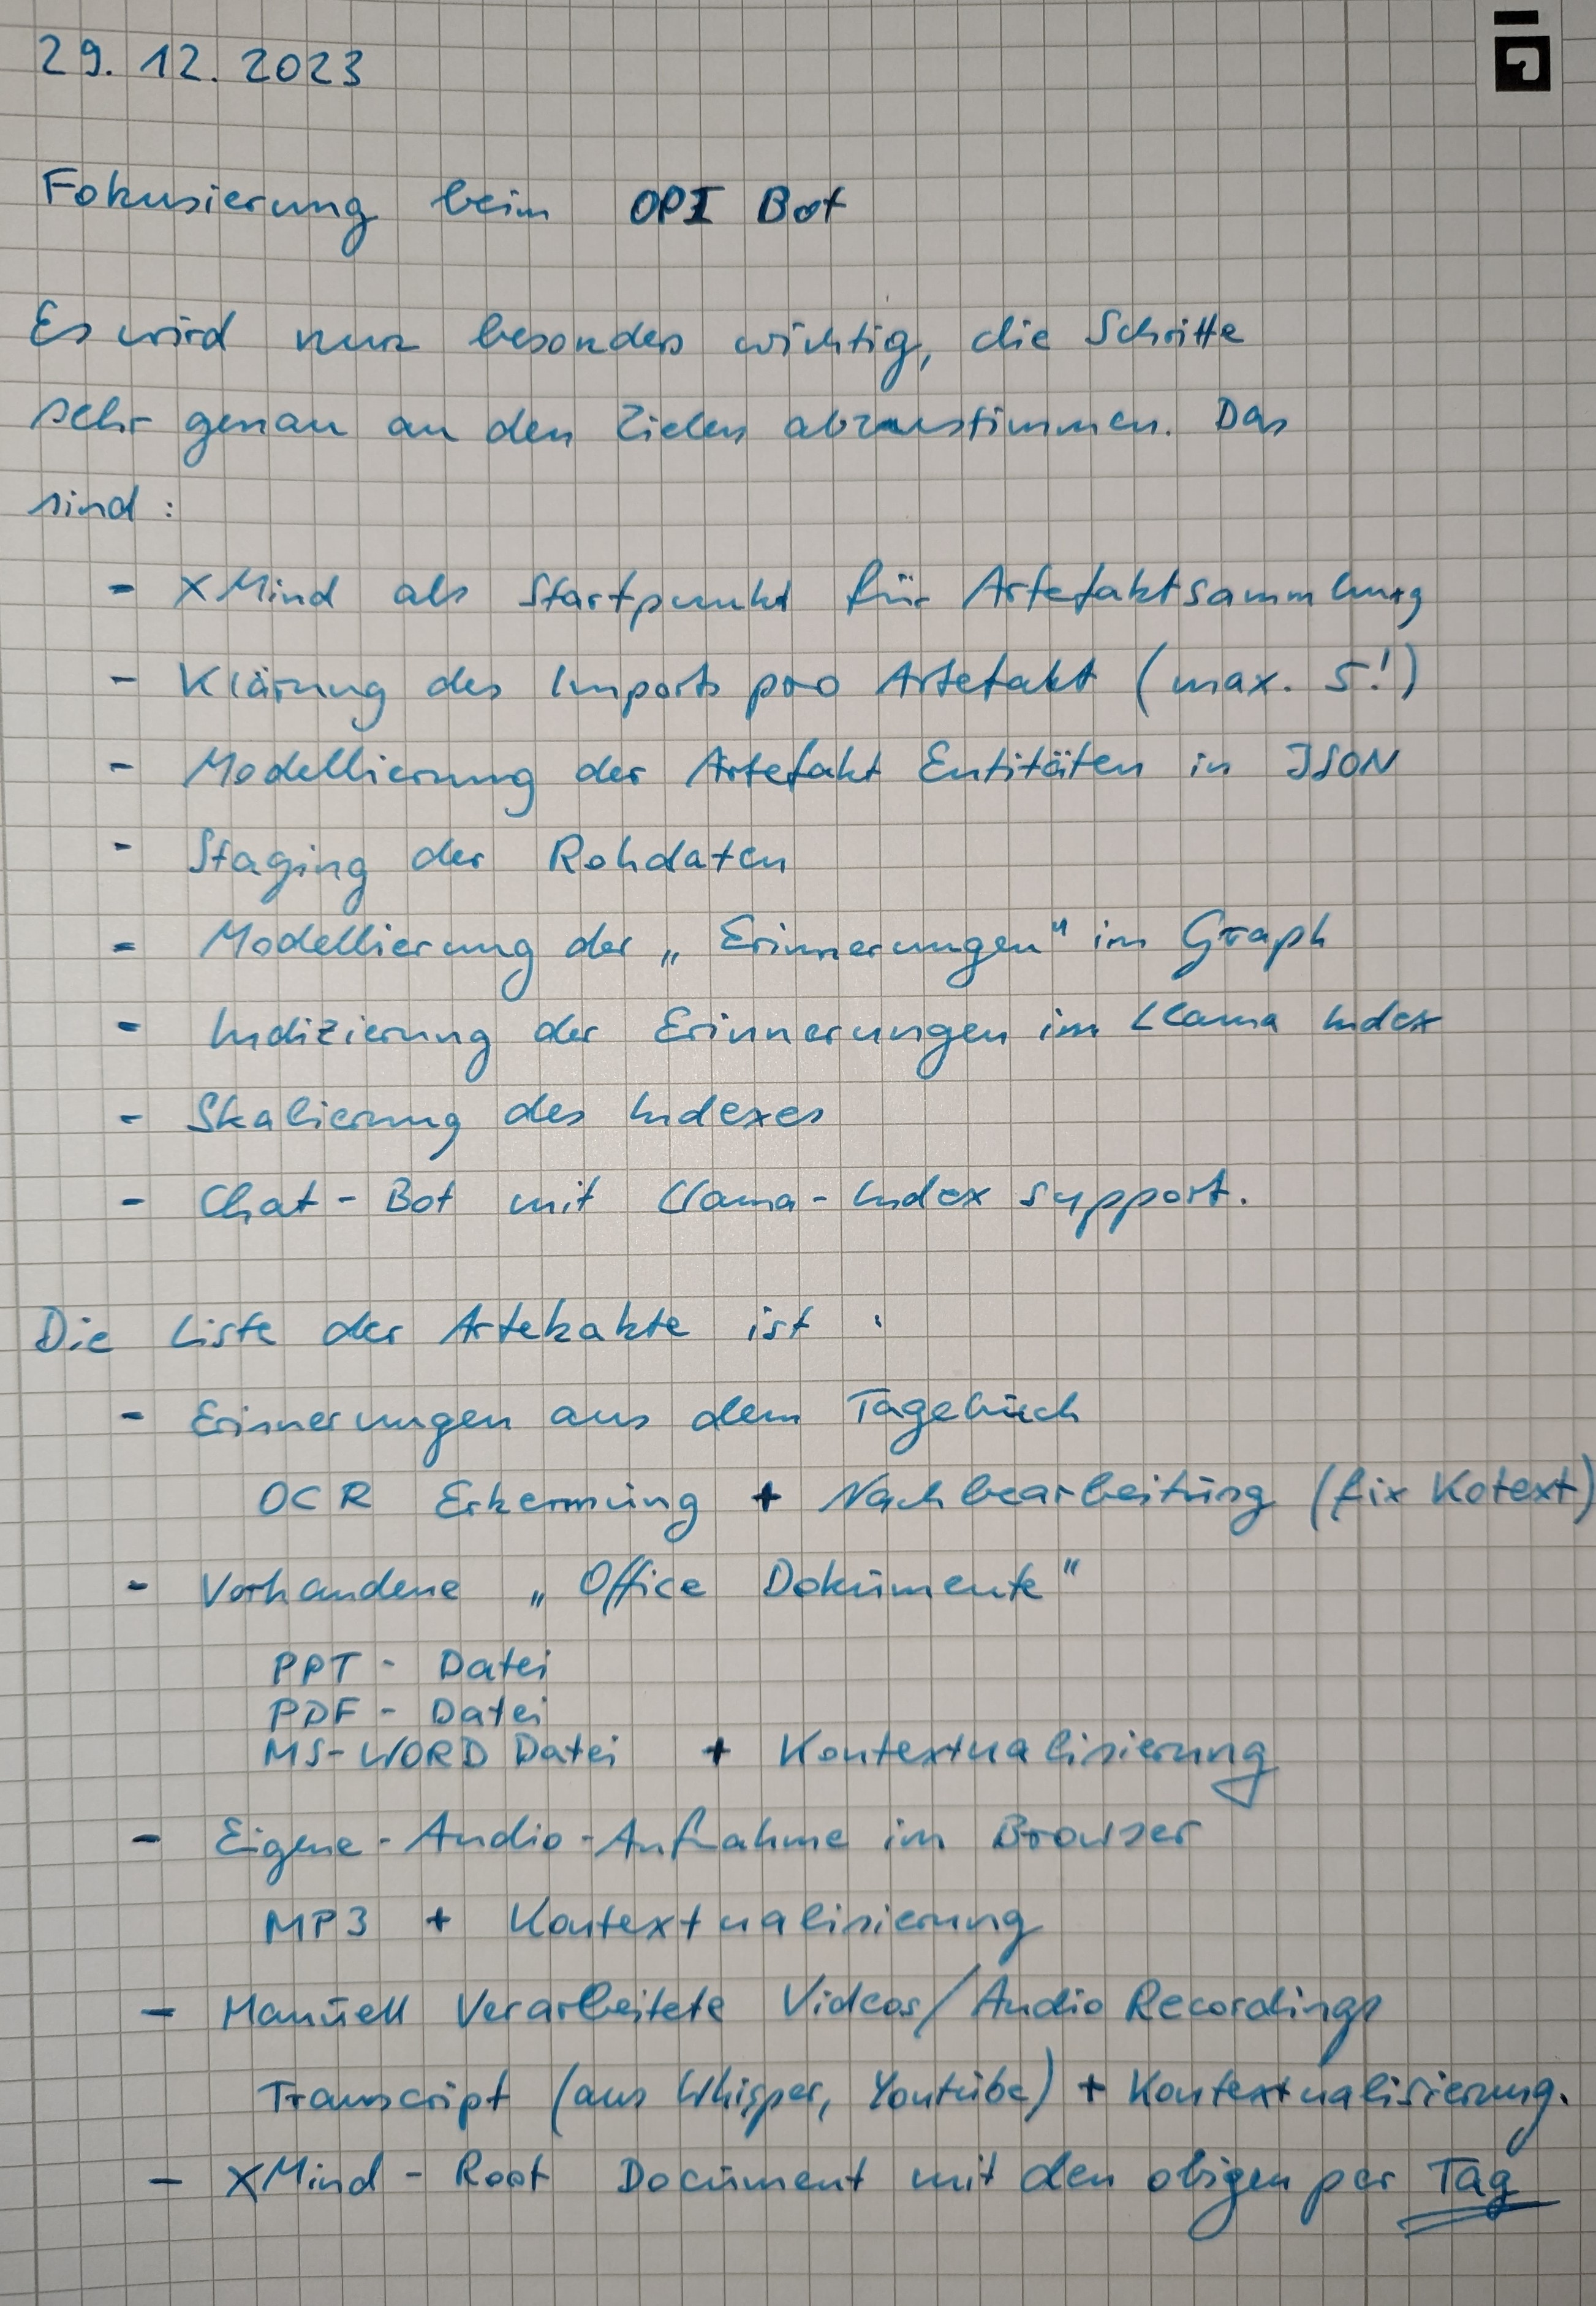 29. 12. 2023
Fokusierung beim OPI Bot
Es wird nun besonders wichtig, die Schritte
sehr genau an den Zielen abzustimmen. Das
sind :
- XMind als Startpunkt für Artefaktsammlung
- Klärung des Imports pro Artefakt (max. 5!)
- Modellierung der Artefakt Entitäten in JSON
- Staging der Rohdaten
- Modellierung der „Erinnerungen" im Graph
- Indizierung der Erinnerungen im LLama Index
- Skalierung des Indexes
- Chat-Bot mit Llama-Index support.
Die Liste der Artekakte ist :
- Erinnerungen aus dem Tagebuch
OCR Erkennung + Nachbearbeitung (fix Kotext)
- Vorhandene „Office Dokumente"
PPT - Datei
PDF - Datei
MS-WORD Datei + Kontextualisierung
- Eigene-Audio-Aufnahme im Browser
MP3 + Kontextualisierung
- Manuell Verarbeitete Videos/Audio Recordings
Transcript (aus Whisper, Youtube) + Kontextualisierung.
- XMind - Root Document mit den obigen per Tag